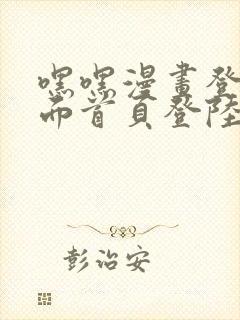 嘿嘿漫畫登
而首頁登陸
彭治安